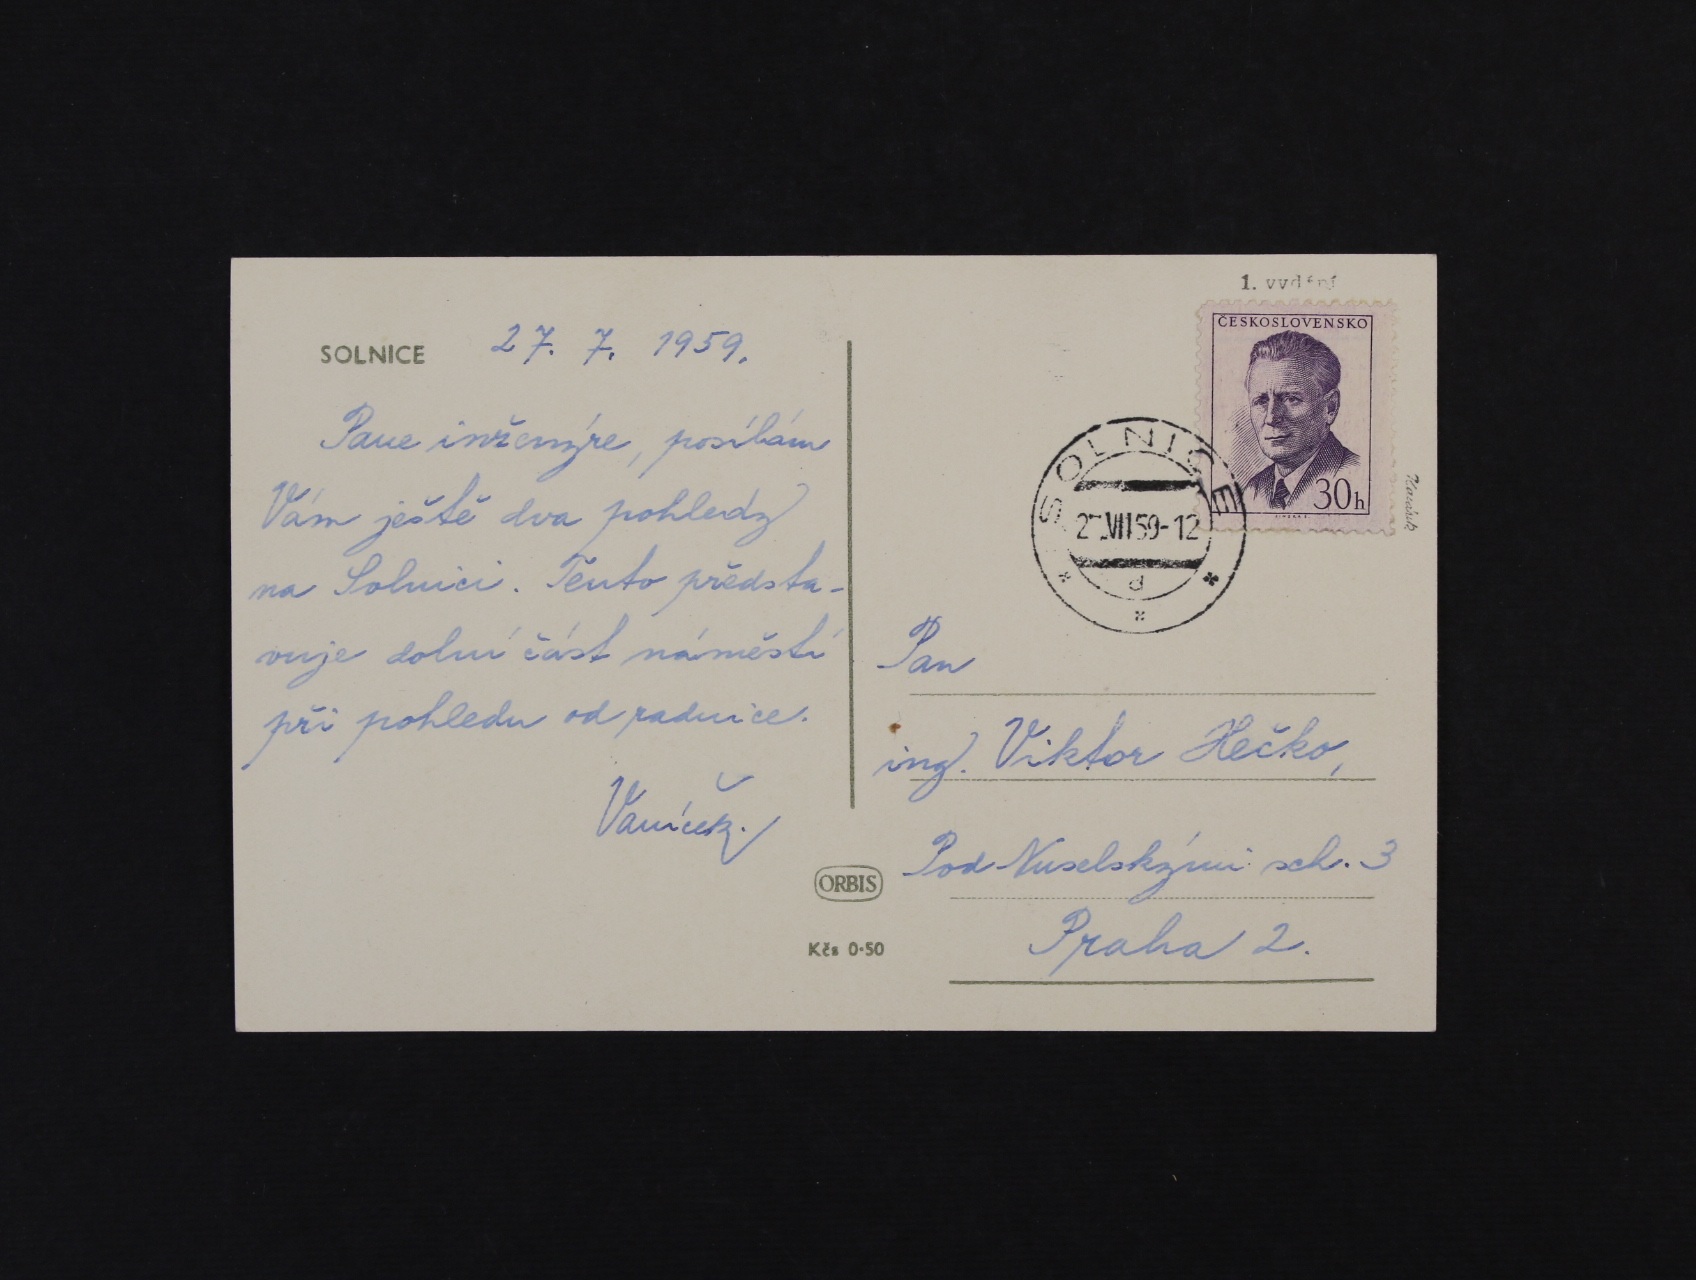 SOLNICE 27. 7. 1959.
Pane inženýre, posílám
Vám ještě dva pohledy
na Solnici. Tento předsta-
vuje dolní část náměstí
při pohledu od radnice.
Vaníček.
ORBIS
Kčs 0·50
1. vydání
ČESKOSLOVENSKO
30h
SOLNICE
27.VII59-12
d
Pan
ing. Viktor Hečko,
Pod Nuselskými sch. 3
Praha 2.